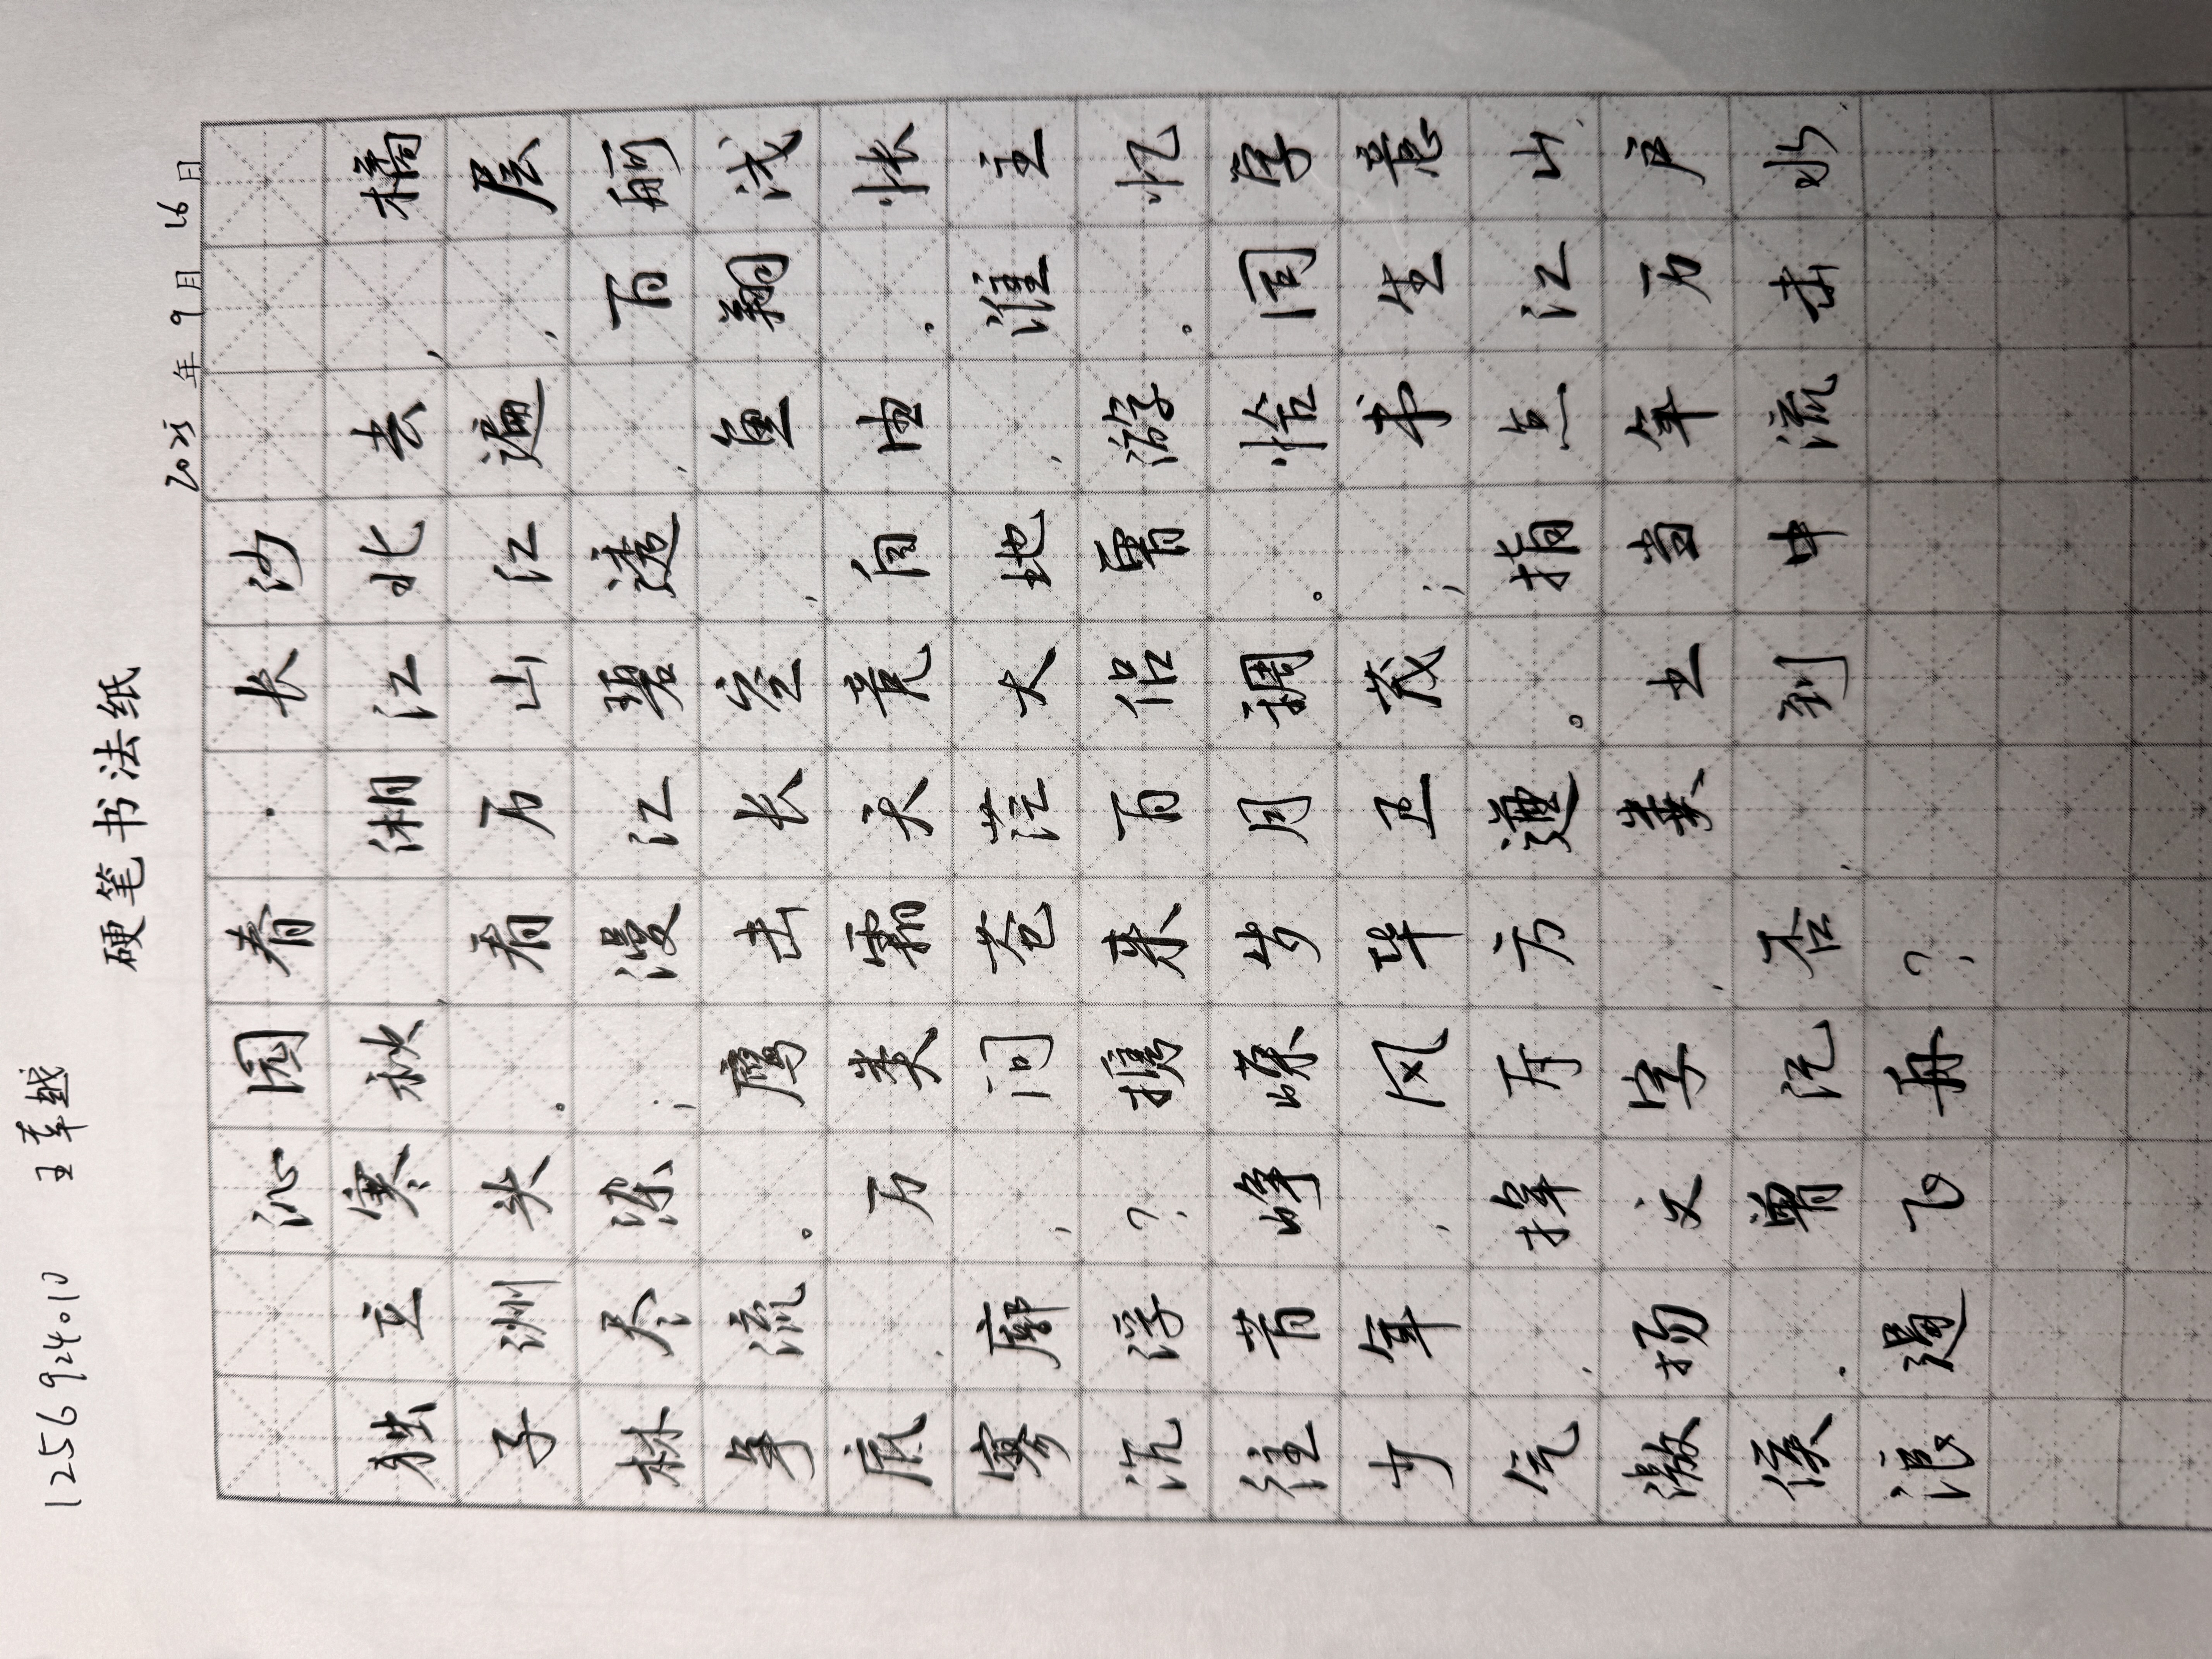 1256924010
硬笔书法纸
2025 年 9 月 16 日
沁园春·长沙
独立寒秋，湘江北去，橘
子洲头。看万山红遍，层
林尽染；漫江碧透，百舸
争流。鹰击长空，鱼翔浅
底，万类霜天竞自由。怅
寥廓，问苍茫大地，谁主
沉浮？携来百侣曾游。忆
往昔峥嵘岁月稠。恰同学
少年，风华正茂；书生意
气，挥斥方遒。指点江山，
激扬文字，粪土当年万户
侯。曾记否，到中流击水，
浪遏飞舟？